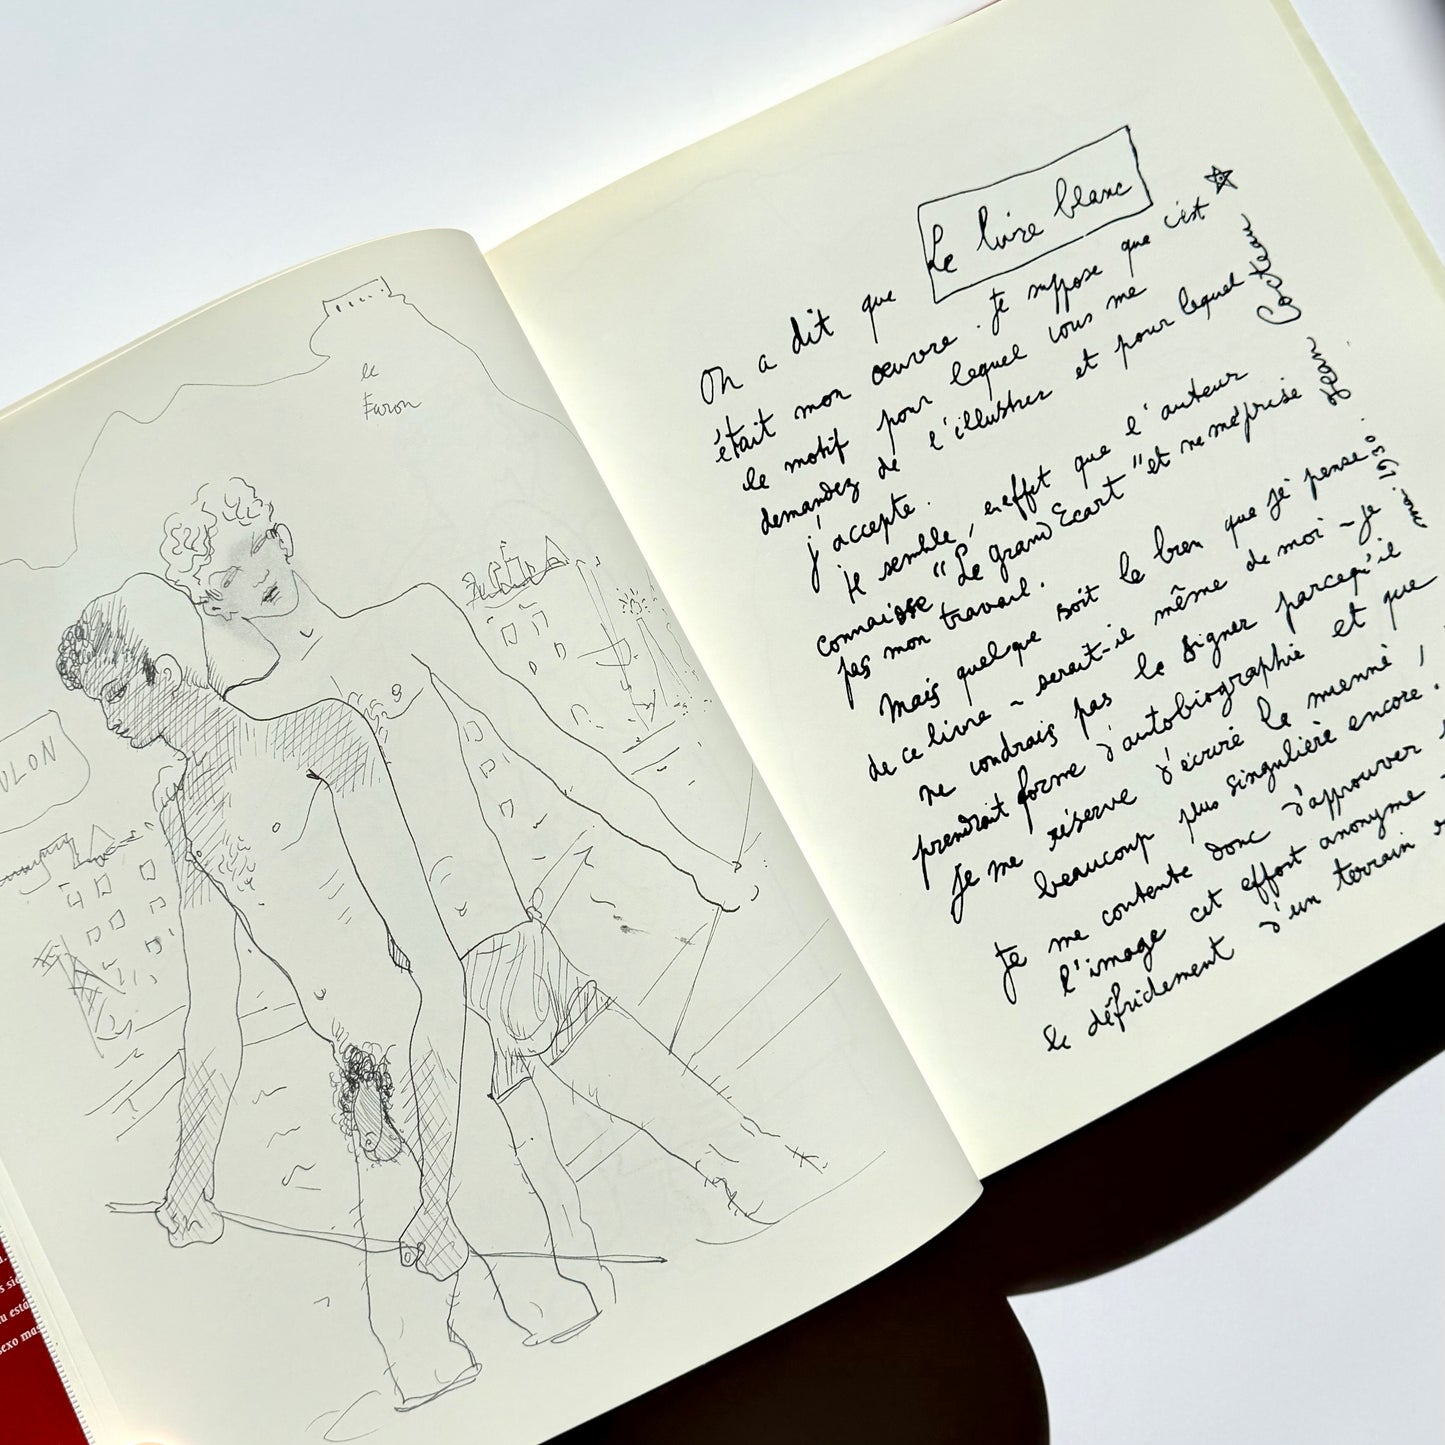 le
Faron
ULON
Le livre blanc
On a dit que
était mon œuvre. Je suppose que c'est
le motif pour lequel vous me
demandez de l'illustrer et pour lequel
j'accepte.
Il semble, en effet que l'auteur
connaisse "Le grand Ecart" et ne méprise
pas mon travail.
Mais quelque soit le bien que je pense
de ce livre - serait-il même de moi - je
ne voudrais pas le signer parcequ'il
prendrait forme d'autobiographie et que
je me réserve d'écrire la mienne,
beaucoup plus singulière encore.
Je me contente donc d'approuver
l'image cet effort anonyme
le défrichement d'un terrain
Jean Cocteau
mai 1930.
u está
sexo mas